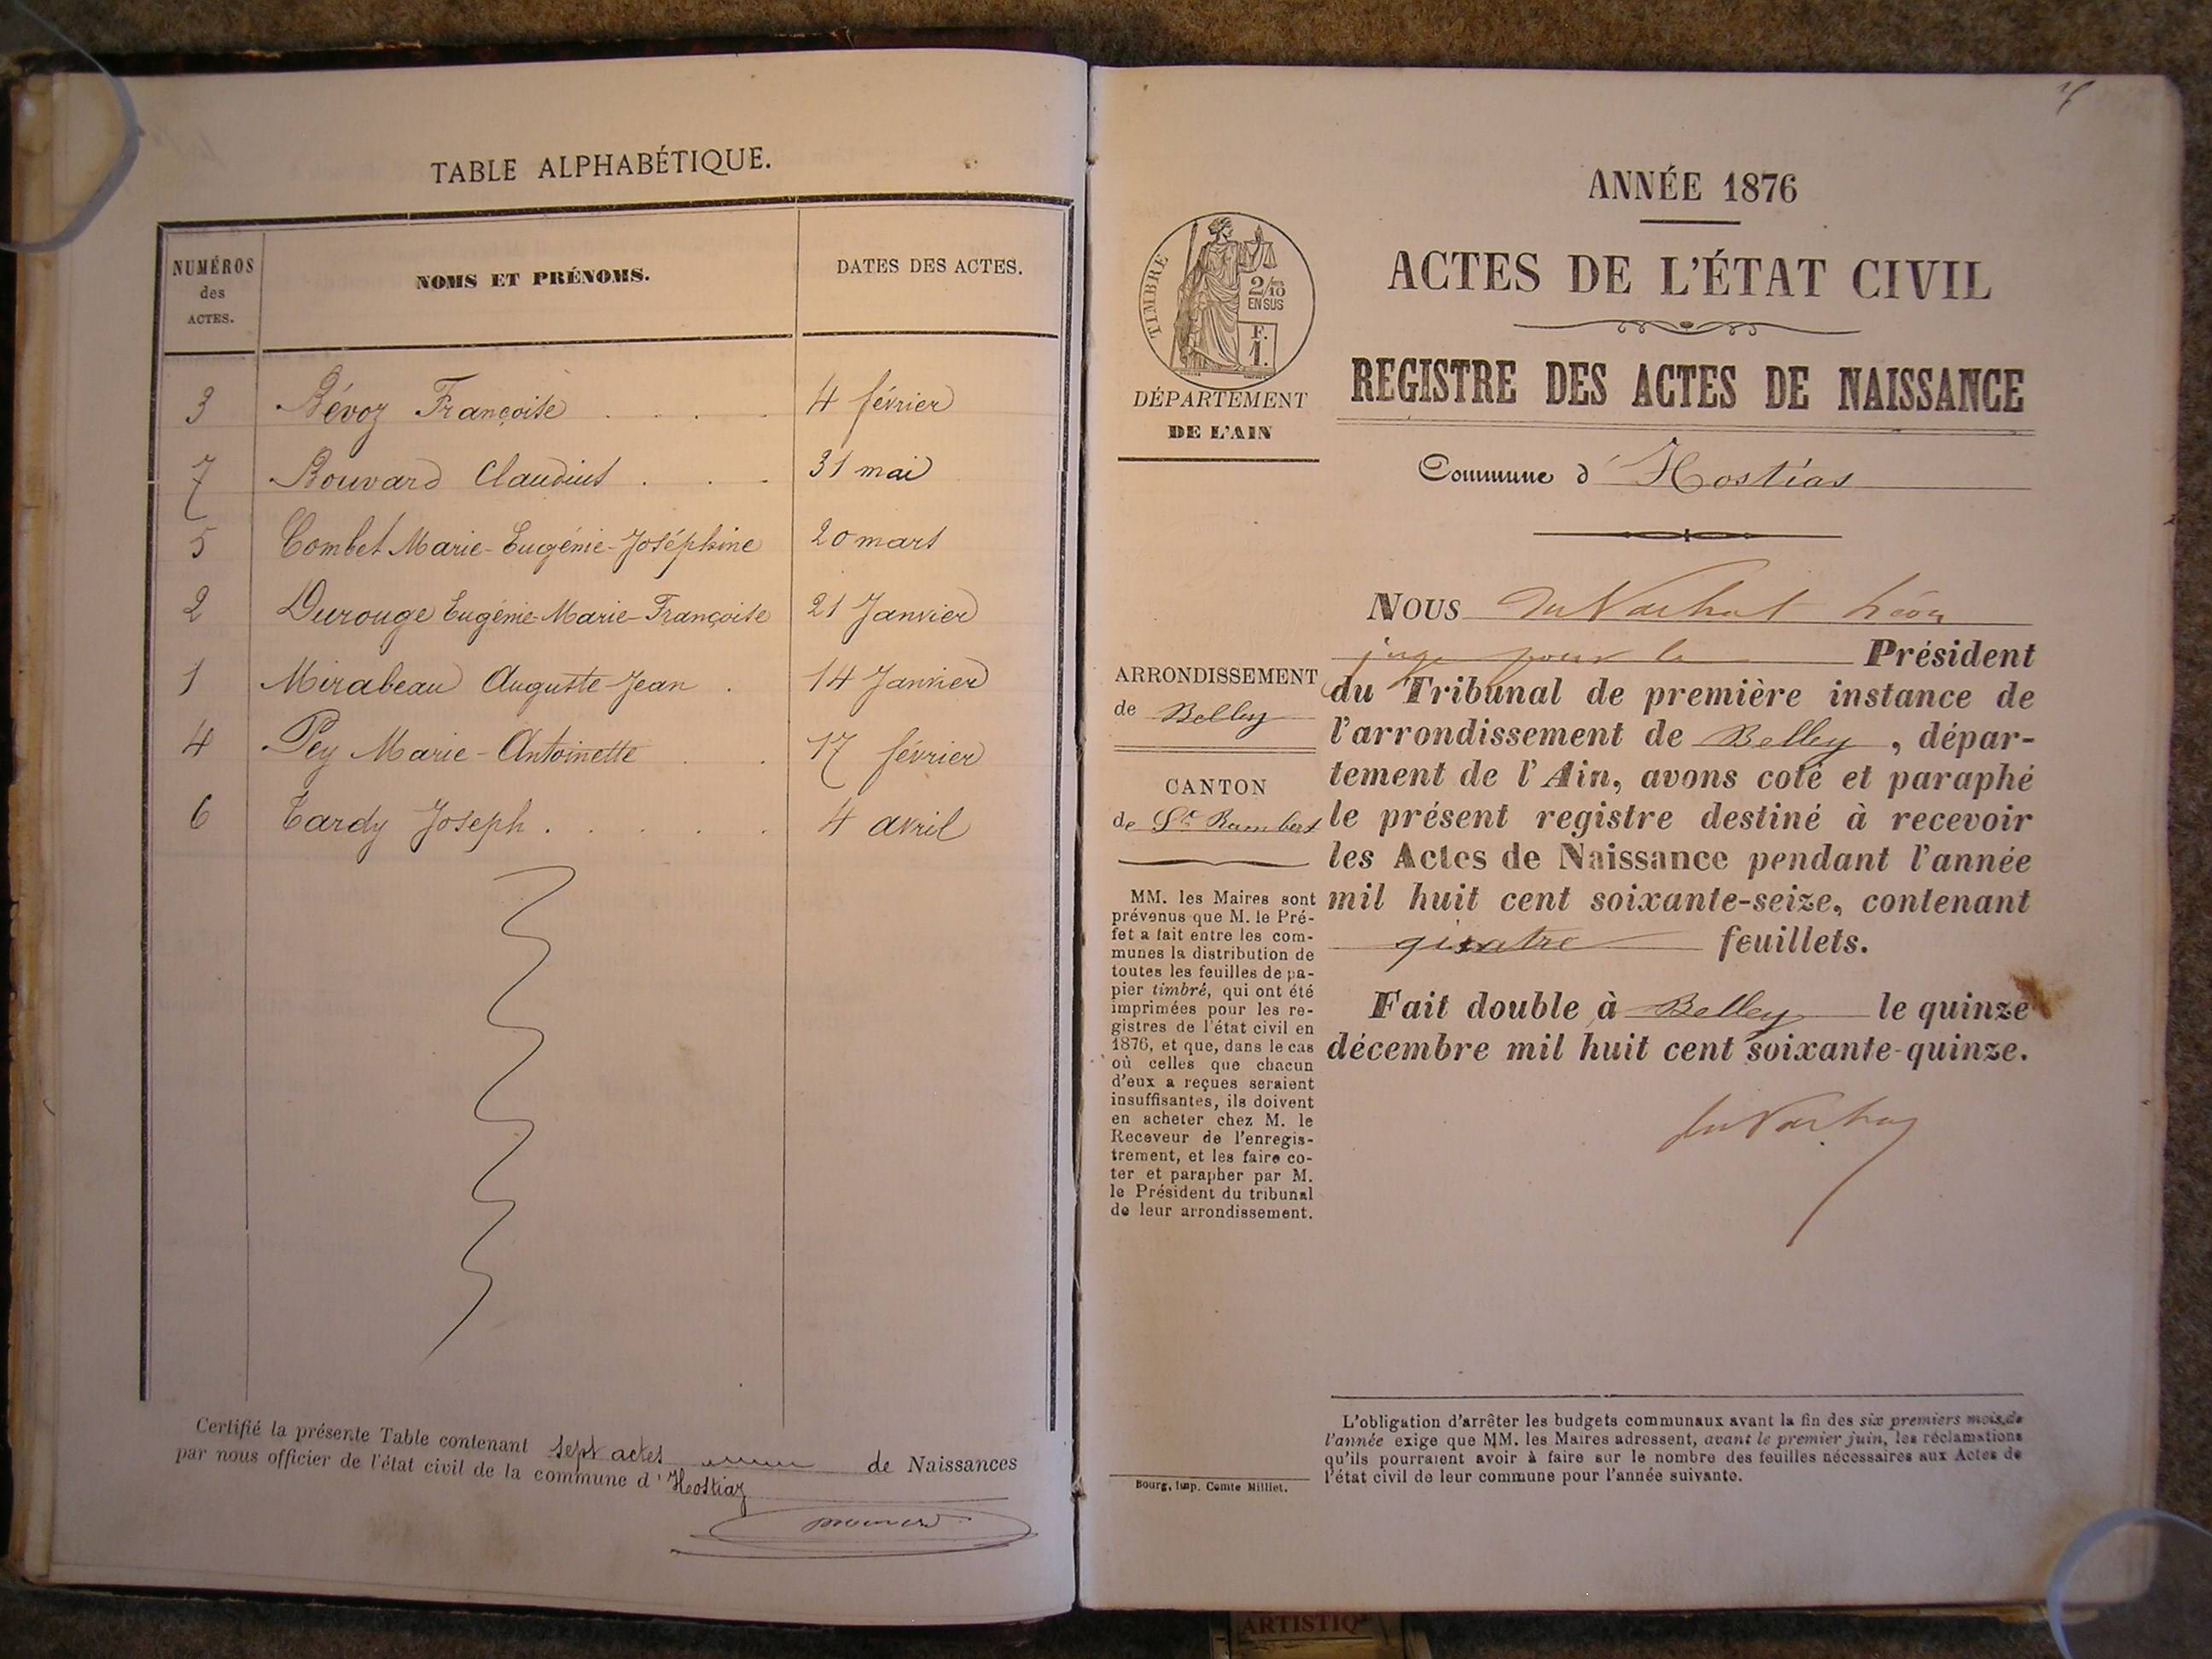 TABLE ALPHABÉTIQUE.
NUMÉROS des ACTES. NOMS ET PRÉNOMS. DATES DES ACTES.
3 Bévoz Françoise 4 février
7 Bouvard Claudius 31 mai
5 Combet Marie-Eugénie-Joséphine 20 mars
2 Durouge Eugénie-Marie-Françoise 21 Janvier
1 Mirabeau Auguste Jean 14 Janvier
4 Pey Marie-Antoinette 17 février
6 Tardy Joseph 4 avril
Certifié la présente Table contenant sept actes de Naissances
par nous officier de l'état civil de la commune d'Hostiaz
ANNÉE 1876
ACTES DE L'ÉTAT CIVIL
REGISTRE DES ACTES DE NAISSANCE
Commune d'Hostias
TIMBRE
2/10
EN SUS
F.
1.
DÉPARTEMENT
DE L'AIN
ARRONDISSEMENT
de Belley
CANTON
de St Rambert
MM. les Maires sont
prévenus que M. le Pré-
fet a fait entre les com-
munes la distribution de
toutes les feuilles de pa-
pier timbré, qui ont été
imprimées pour les re-
gistres de l'état civil en
1876, et que, dans le cas
où celles que chacun
d'eux a reçues seraient
insuffisantes, ils doivent
en acheter chez M. le
Receveur de l'enregis-
trement, et les faire co-
ter et parapher par M.
le Président du tribunal
de leur arrondissement.
Bourg, Imp. Comte Milliet.
NOUS Léon
juge pour le Président
du Tribunal de première instance de
l'arrondissement de Belley, dépar-
tement de l'Ain, avons coté et paraphé
le présent registre destiné à recevoir
les Actes de Naissance pendant l'année
mil huit cent soixante-seize, contenant
quatre feuillets.
Fait double à Belley le quinze
décembre mil huit cent soixante-quinze.
L'obligation d'arrêter les budgets communaux avant la fin des six premiers mois de
l'année exige que MM. les Maires adressent, avant le premier juin, les réclamations
qu'ils pourraient avoir à faire sur le nombre des feuilles nécessaires aux Actes de
l'état civil de leur commune pour l'année suivante.
ARTISTIQ